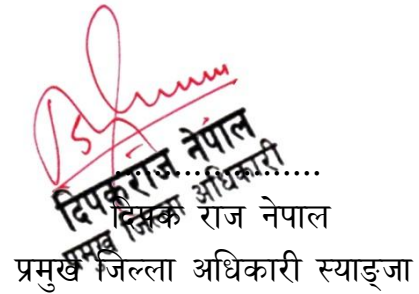 दिपकराज नेपाल
प्रमुख जिल्ला अधिकारी
....................
दिपक राज नेपाल
प्रमुख जिल्ला अधिकारी स्याङ्जा